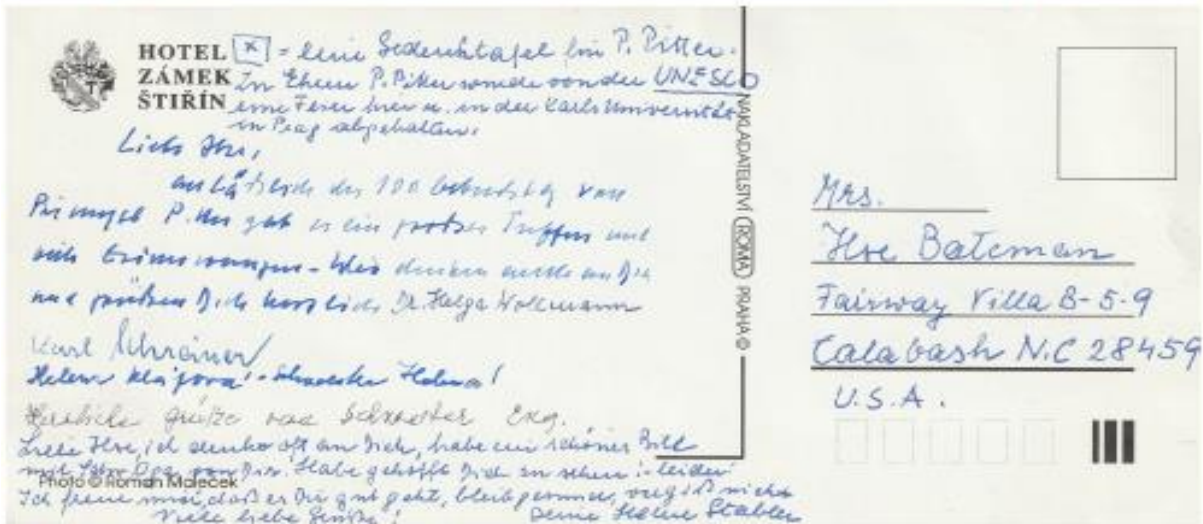 HOTEL
ZÁMEK
ŠTIŘÍN
x = eine Gedenktafel für P. Pitter.
In Ehren P. Pitter wurde von der UNESCO
eine Feier hier u. in der Karls Universität
in Prag abgehalten.
Liebe Ilse,
anläßlich des 100 Geburtstag von
Přemysl Pitter gab es ein großes Treffen und
viele Erinnerungen - Wir denken auch an Dich
und grüßen Dich herzlich Dr. Helga Wollmann
Karl Schreiner
Helena Klájová - Schwester Helena!
Herzliche Grüße von Schwester
Liebe Ilse, ich denke oft an Dich, habe ein schönes Bild
mit von Dir. Habe gehofft Dich zu sehen - leider!
Photo © Roman Maleček
Ich freue mich, daß es Dir gut geht, bleib gesund, vergiß nicht
Viele liebe Grüße! Deine Stabler
NAKLADATELSTVÍ ROMA PRAHA ©
Mrs.
Ilse Bateman
Fairway Villa B-5-9
Calabash N.C 28459
U.S.A.